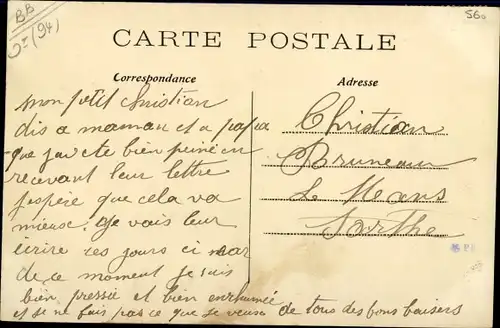 BB
(94)
560
CARTE POSTALE
Correspondance
Adresse
mon petit christian
dis a maman et a papa
que j'ai ete bien peiné en
recevant leur lettre
j'espère que cela va
mieux. Je vais leur
écrire ces jours ci car
de ce moment je suis
bien pressié et bien enrhumée
et je ne sais pas ce que je veux de tous des bons baisers
Christian
Bruneau
Le Mans
Sarthe